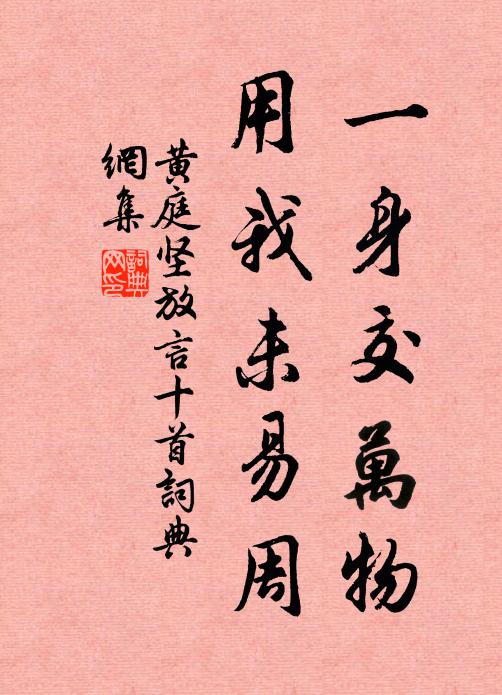 一身交萬物
用我未易周
黄庭坚放言十首詞典
網集
詞典
网印